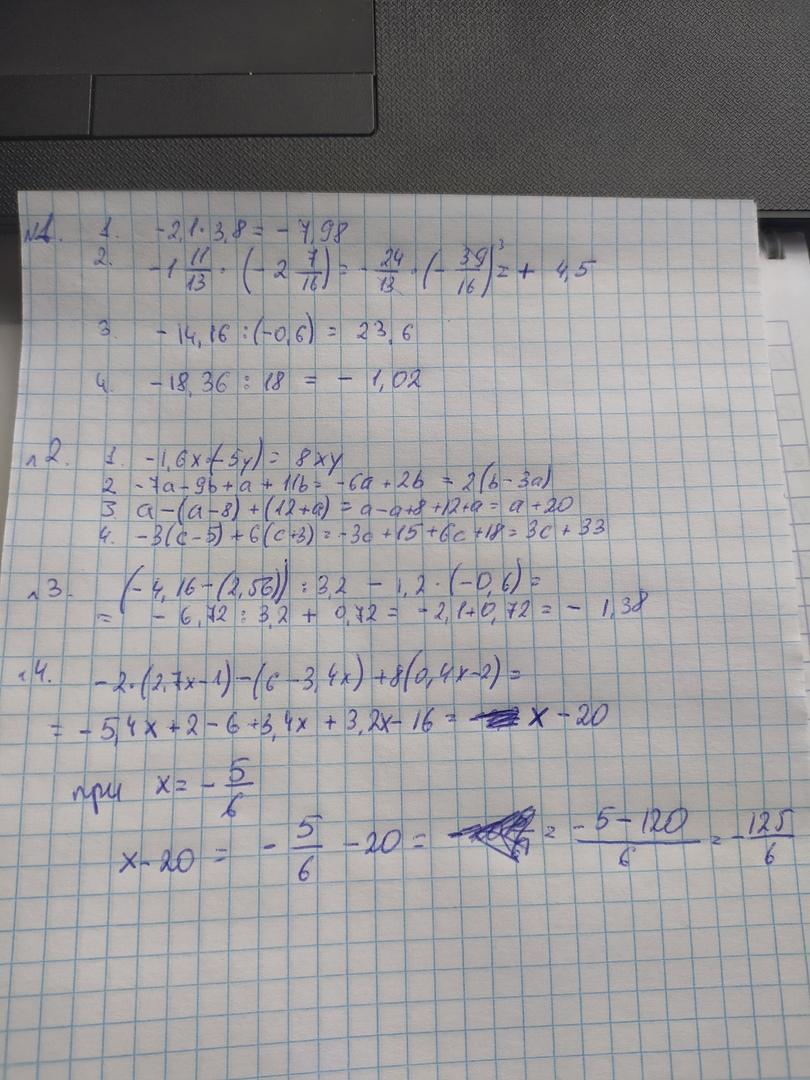 №1. 1. -2,1·3,8 = -7,98
2. -1 11/13 · (-2 7/16) = -24/13 · (-39/16)³ = + 4,5
3. -14,16 : (-0,6) = 23,6
4. -18,36 : 18 = - 1,02
№2. 1. -1,6x·(-5y) = 8xy
2. -7a-9b+a+11b = -6a+2b = 2(b-3a)
3. a-(a-8)+(12+a) = a-a+8+12+a = a+20
4. -3(c-5)+6(c+3) = -3c+15+6c+18 = 3c+33
№3. (-4,16-(2,56)) : 3,2 - 1,2·(-0,6) =
= -6,72 : 3,2 + 0,72 = -2,1+0,72 = - 1,38
№4. -2·(2,7x-1)-(6-3,4x)+8(0,4x-2) =
= -5,4x+2-6+3,4x+3,2x-16 = x-20
при x = -5/6
x-20 = -5/6 -20 = = -5-120/6 = -125/6